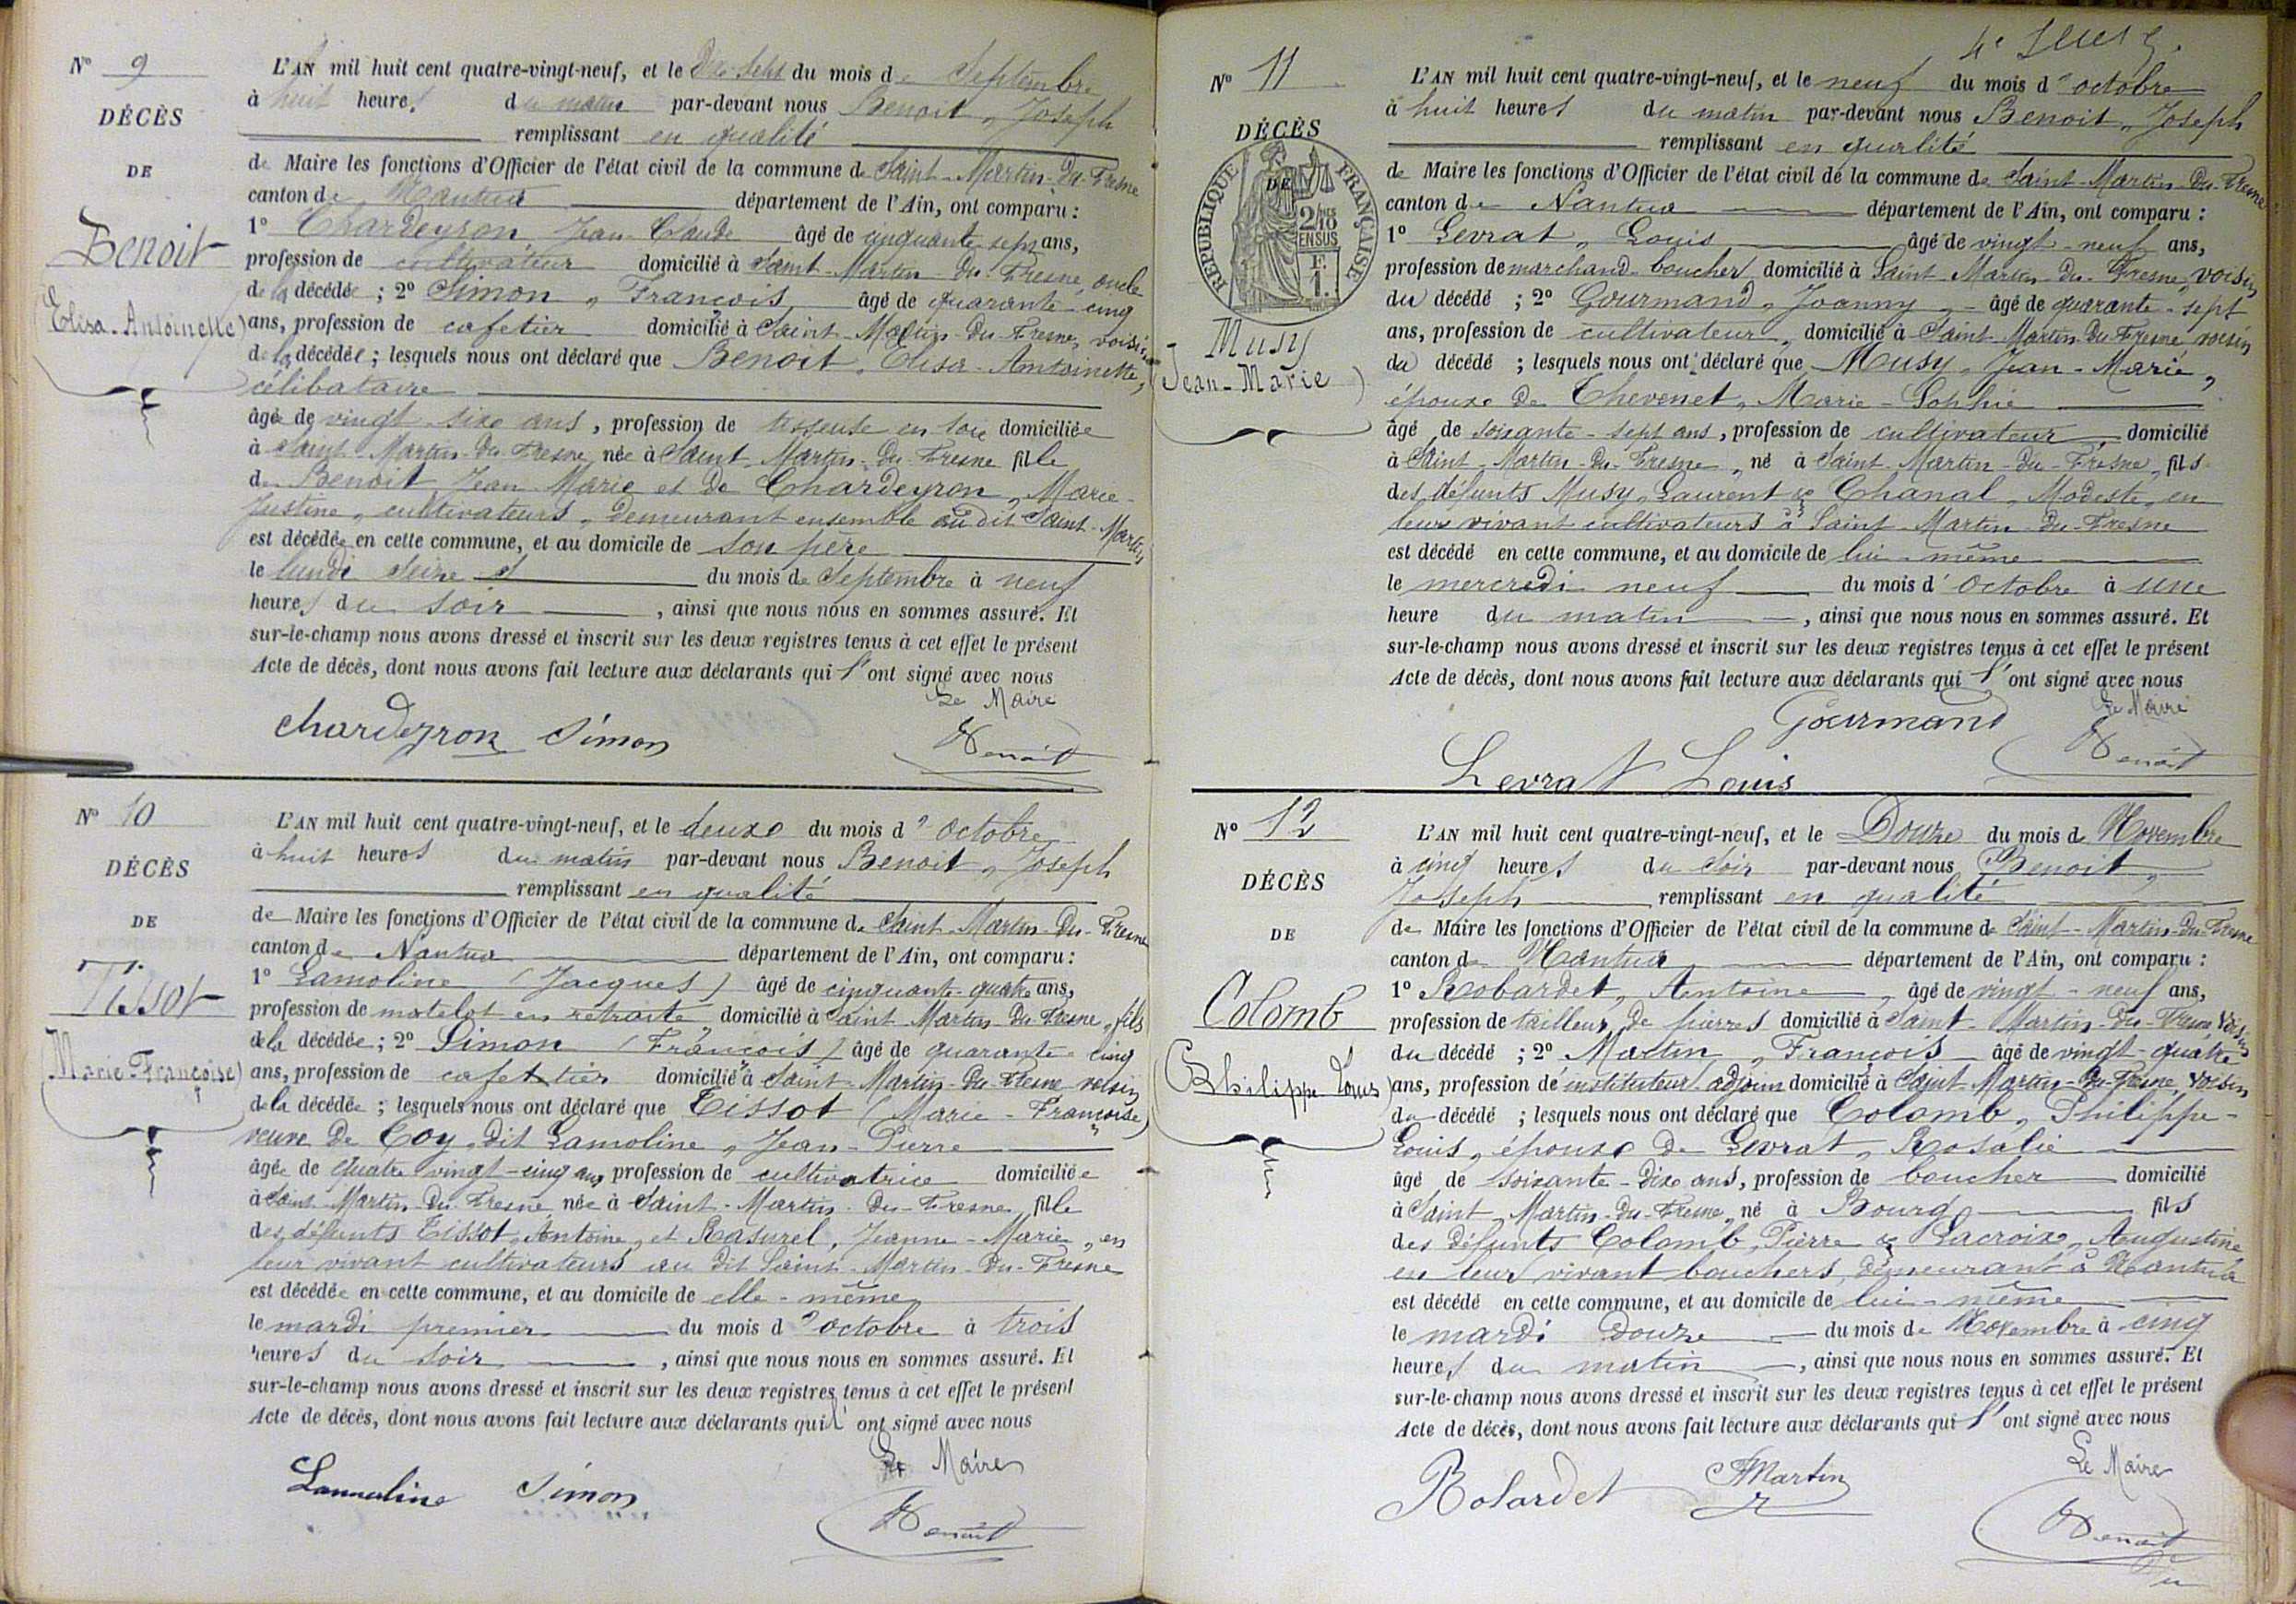 N° 9
DÉCÈS
DE
Benoit
(Elisa-Antoinette)
L'AN mil huit cent quatre-vingt-neuf, et le Dix sept du mois de Septembre
à huit heures du matin par-devant nous Benoit, Joseph
remplissant en qualité
de Maire les fonctions d'Officier de l'état civil de la commune de Saint-Martin-du-Fresne
canton de Nantua département de l'Ain, ont comparu :
1° Chardeyron Jean-Claude âgé de cinquante sept ans,
profession de cultivateur domicilié à Saint-Martin du Fresne, oncle
de la décédée ; 2° Simon, François, âgé de quarante-cinq
ans, profession de cafetier domicilié à Saint-Martin-du-Fresne, voisin
de la décédée ; lesquels nous ont déclaré que Benoit, Elisa-Antoinette,
célibataire
âgée de vingt-six ans, profession de tisseuse en soie domiciliée
à Saint Martin-du-Fresne, née à Saint-Martin-du-Fresne fille
de Benoit Jean Marie et de Chardeyron, Marie-
Justine, cultivateurs, demeurant ensemble au dit Saint-Martin,
est décédée en cette commune, et au domicile de son père
le lundi seize du mois de Septembre à neuf
heures du soir, ainsi que nous nous en sommes assuré. Et
sur-le-champ nous avons dressé et inscrit sur les deux registres tenus à cet effet le présent
Acte de décès, dont nous avons fait lecture aux déclarants qui l'ont signé avec nous
Le Maire
Chardeyron Simon Benoit
N° 10
DÉCÈS
DE
Tissot
(Marie-Françoise)
L'AN mil huit cent quatre-vingt-neuf, et le deux du mois d'octobre
à huit heures du matin par-devant nous Benoit, Joseph
remplissant en qualité
de Maire les fonctions d'Officier de l'état civil de la commune de Saint-Martin-du-Fresne
canton de Nantua département de l'Ain, ont comparu :
1° Lamoline (Jacques) âgé de cinquante-quatre ans,
profession de matelot en retraite domicilié à Saint Martin-du-Fresne, fils
de la décédée ; 2° Simon (François) âgé de quarante-cinq
ans, profession de cafettier domicilié à Saint-Martin-du-Fresne voisin
de la décédée ; lesquels nous ont déclaré que Tissot (Marie-Françoise)
veuve de Coy, dit Lamoline, Jean-Pierre
âgée de quatre vingt-cinq ans profession de cultivatrice domiciliée
à Saint Martin-du-Fresne née à Saint-Martin-du-Fresne, fille
des défunts Tissot, Antoine, et Rasurel, Jeanne-Marie, en
leur vivant cultivateurs au dit Saint-Martin-du-Fresne
est décédée en cette commune, et au domicile de elle-même
le mardi premier du mois d'octobre à trois
heures du soir, ainsi que nous nous en sommes assuré. Et
sur-le-champ nous avons dressé et inscrit sur les deux registres tenus à cet effet le présent
Acte de décès, dont nous avons fait lecture aux déclarants qui l'ont signé avec nous
Le Maire
Lamoline Simon Benoit
N° 11
DÉCÈS
DE
RÉPUBLIQUE FRANÇAISE
2/10 EN SUS
Musy
(Jean-Marie)
L'AN mil huit cent quatre-vingt-neuf, et le neuf du mois d'octobre
à huit heures du matin par-devant nous Benoit, Joseph
remplissant en qualité
de Maire les fonctions d'Officier de l'état civil de la commune de Saint-Martin-du-Fresne
canton de Nantua département de l'Ain, ont comparu :
1° Levrat, Louis âgé de vingt-neuf ans,
profession de marchand-boucher domicilié à Saint-Martin-du-Fresne, voisin
du décédé ; 2° Gourmand, Joanny, âgé de quarante-sept
ans, profession de cultivateur, domicilié à Saint-Martin-du-Fresne voisin
du décédé ; lesquels nous ont déclaré que Musy, Jean-Marie,
époux de Thevenet, Marie-Sophie
âgé de soixante-sept ans, profession de cultivateur domicilié
à Saint-Martin-du-Fresne, né à Saint-Martin-du-Fresne, fils
des défunts Musy, Laurent & Chanal, Modeste, en
leur vivant cultivateurs à Saint-Martin-du-Fresne
est décédé en cette commune, et au domicile de lui-même
le mercredi neuf du mois d'octobre à une
heure du matin, ainsi que nous nous en sommes assuré. Et
sur-le-champ nous avons dressé et inscrit sur les deux registres tenus à cet effet le présent
Acte de décès, dont nous avons fait lecture aux déclarants qui l'ont signé avec nous
Le Maire
Gourmand Benoit
Levrat Louis
N° 12
DÉCÈS
DE
Colomb
(Philippe Louis)
L'AN mil huit cent quatre-vingt-neuf, et le Douze du mois de Novembre
à cinq heures du soir par-devant nous Benoit,
Joseph remplissant en qualité
de Maire les fonctions d'Officier de l'état civil de la commune de Saint-Martin-du-Fresne
canton de Nantua département de l'Ain, ont comparu :
1° Robardet, Antoine, âgé de vingt-neuf ans,
profession de tailleur de pierres domicilié à Saint-Martin-du-Fresne voisin
du décédé ; 2° Martin, François âgé de vingt-quatre
ans, profession de instituteur adjoint domicilié à Saint-Martin-du-Fresne, voisin
du décédé ; lesquels nous ont déclaré que Colomb, Philippe-
Louis, époux de Levrat, Rosalie
âgé de soixante-dix ans, profession de boucher domicilié
à Saint-Martin-du-Fresne, né à Bourg fils
des défunts Colomb, Pierre & Lacroix, Augustine
en leur vivant bouchers, demeurant à Nantua
est décédé en cette commune, et au domicile de lui-même
le mardi douze du mois de Novembre à cinq
heures du matin, ainsi que nous nous en sommes assuré. Et
sur-le-champ nous avons dressé et inscrit sur les deux registres tenus à cet effet le présent
Acte de décès, dont nous avons fait lecture aux déclarants qui l'ont signé avec nous
Le Maire
Robardet FMartin Benoit